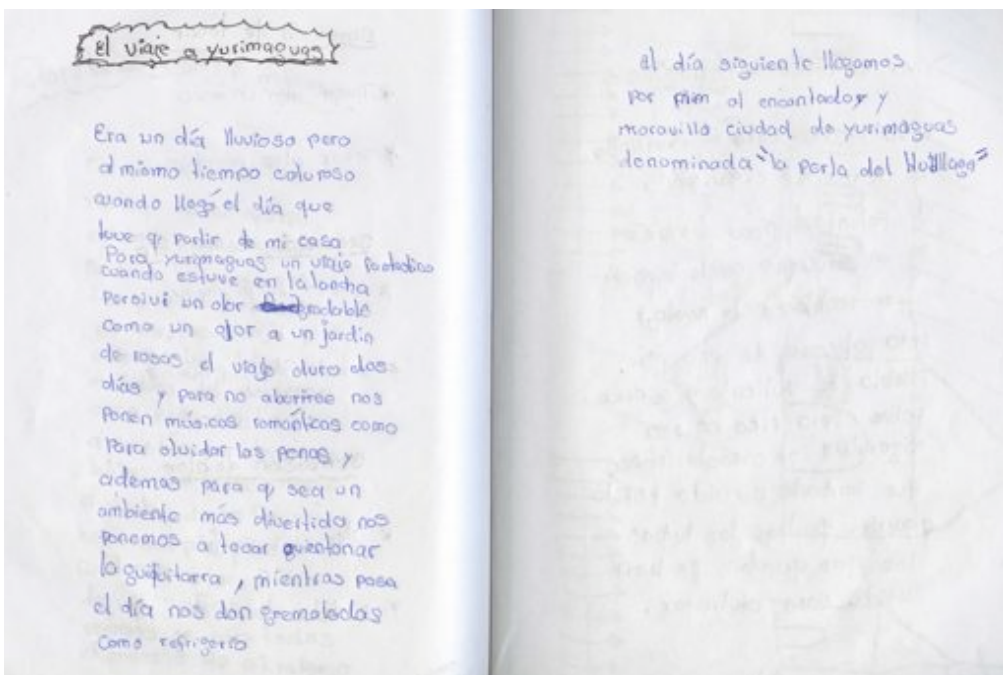 El viaje a yurimaguas
Era un día lluvioso pero
al mismo tiempo caluroso
cuando llegó el día que
tuve q partir de mi casa
Para yurimaguas un viaje fantastico
cuando estuve en la lancha
Percivi un olor agradable
como un olor a un jardín
de rosas el viaje duro dos
días y para no aburirse nos
Ponen músicas románticas como
Para olvidar las penas y
ademas para q sea un
ambiente más divertido nos
ponemos a tocar
la , mientras pasa
el día nos dan gremoladas
como refrigerio
al día siguiente llegamos
por al encantador y
maravilla ciudad de yurimaguas
denominada "la perla del Huallaga"